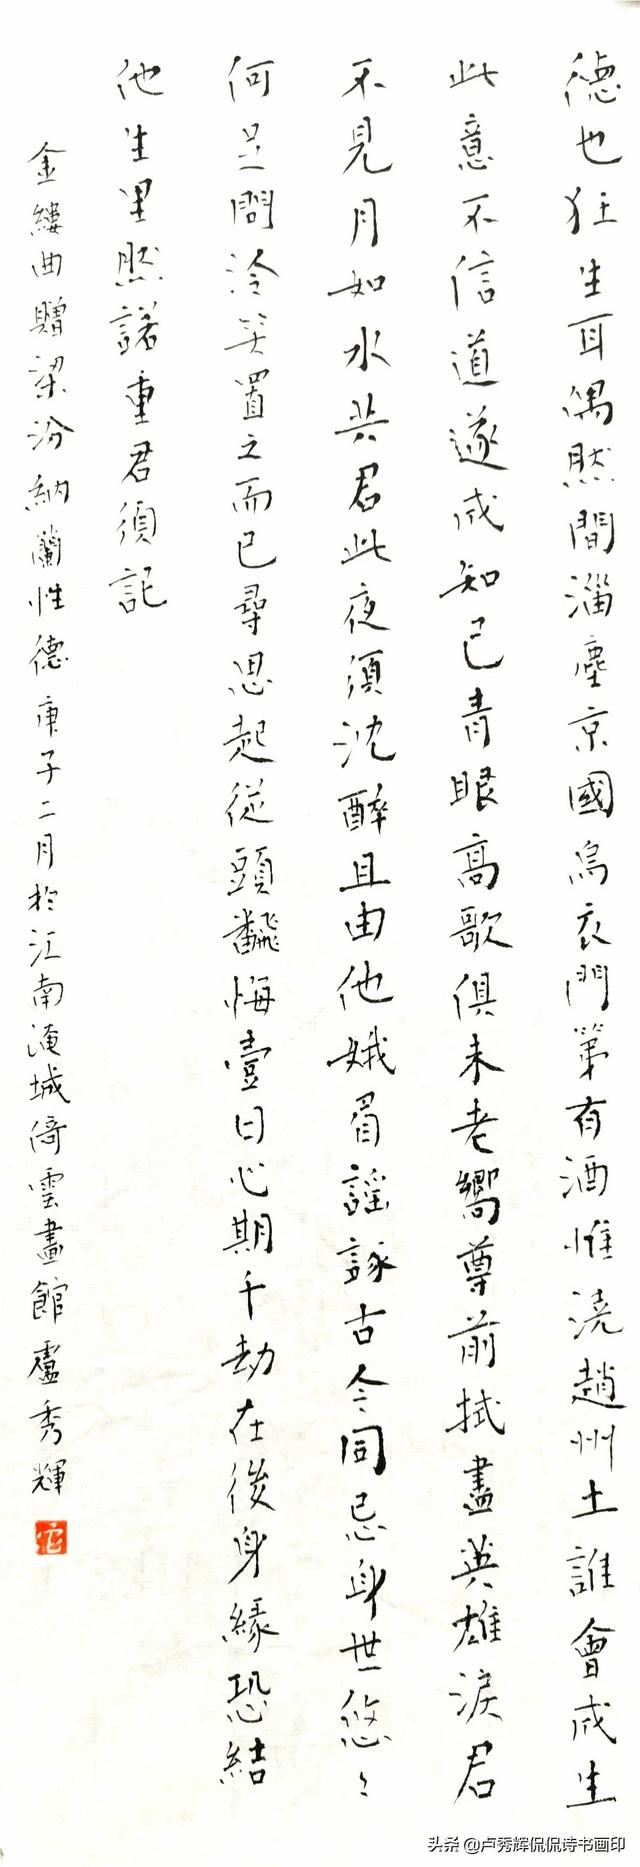 德也狂生耳偶然間淄塵京國烏衣門第有酒惟澆趙州土誰會成生
此意不信道遂成知己青眼高歌俱未老嚮尊前拭盡英雄淚君
不見月如水共君此夜須沈醉且由他娥眉謠諑古今同忌身世悠々
何足問冷笑置之而已尋思起從頭翻悔壹日心期千劫在後身緣恐結
他生里然諾重君須記
金縷曲贈梁汾納蘭性德庚子二月於江南淹城倚雲畫館盧秀輝
头条 @卢秀辉侃侃诗书画印